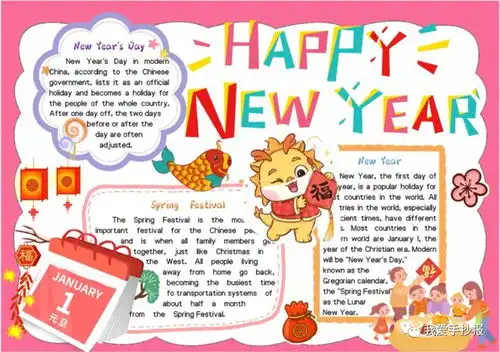 HAPPY
NEW YEAR
New Year's Day
New Year's Day in modern
China, according to the Chinese
government, lists it as an official
holiday and becomes a holiday for
the people of the whole country.
After one day off, the two days
before or after the
day are often
adjusted.
Spring Festival
The Spring Festival is the mos
important festival for the Chinese pe
and is when all family members ge
together, just like Christmas in
the West. All people living
away from home go back,
becoming the busiest time
fo transportation systems of
about half a month
from the Spring Festival.
New Year
New Year, the first day of
year, is a popular holiday for
t countries in the world. All
tries in the world, especially
cient times, have different
s. Most countries in the
rn world are January 1, the
year of the Christian era. Modern
will be "New Year's Day,"
known as the
Gregorian calendar.
the "Spring Festival"
as the Lunar
New Year.
福
福
JANUARY
1
元旦
我爱手抄报